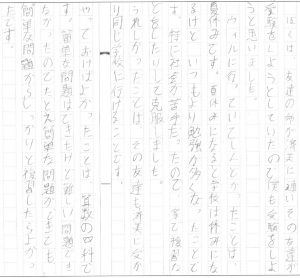 ぼくは、友達の
受験をしようとしていたので僕も受験をしよ
うと思いました。
ウィルに行っていてしんどかったことは、
夏休みです。夏休みになると学校は休みにな
るけど、いつもより勉強が多くなったことで
す。特に社会が苦手だったので
をしたりして克服しました。
うれしかったことは、その友達も
り同じ学校に行けることです。
やっておけばよかったことは、算数の四科で
す。簡単な問題はできたけど難しい問題
なかったのでたとえ簡単な問題ができても
簡単な問題からしっかりと復習したらよかっ
たです。